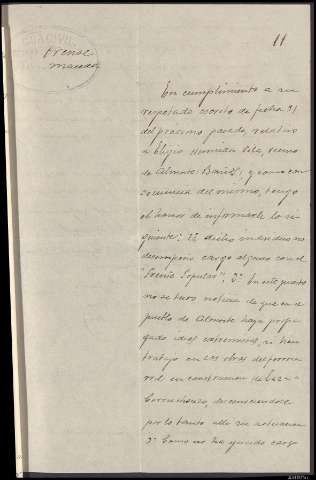 11
Orense
Maceda
En cumplimiento a su
respetado escrito de fecha 31
del próximo pasado, relativo
a Eligio Guzmán Sola, vecino
de Almoite (Baños), y como con
secuencia del mismo, tengo
el honor de informarle lo si
guiente: 1º dicho individuo no
desempeño cargo alguno con el
"Frente Popular" 2º En este puesto
no se tuvo noticia de que en el
pueblo de Almoite haya propa
gado ideas extremistas, si han
trabajo en las obras del ferroca
rril en construcción de
Coruña, desconociendose
por lo tanto allí su actuacion
3º Como no ha ejercido cargo